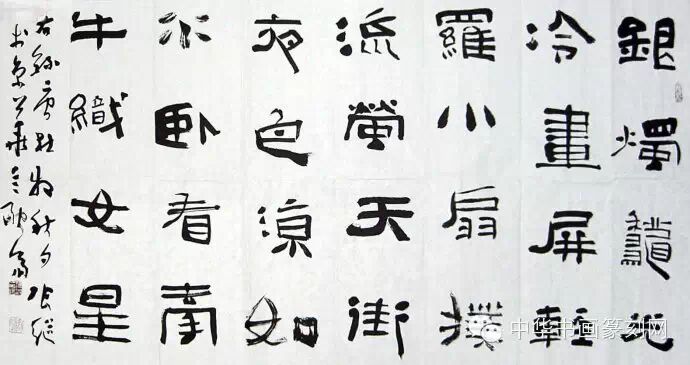 銀燭龝光
冷畫屏輕
羅小扇撲
流螢天街
夜色涼如
水卧看牽
牛織女星
右錄唐杜牧秋夕張繼
於京華三融齋
中华书画篆刻网